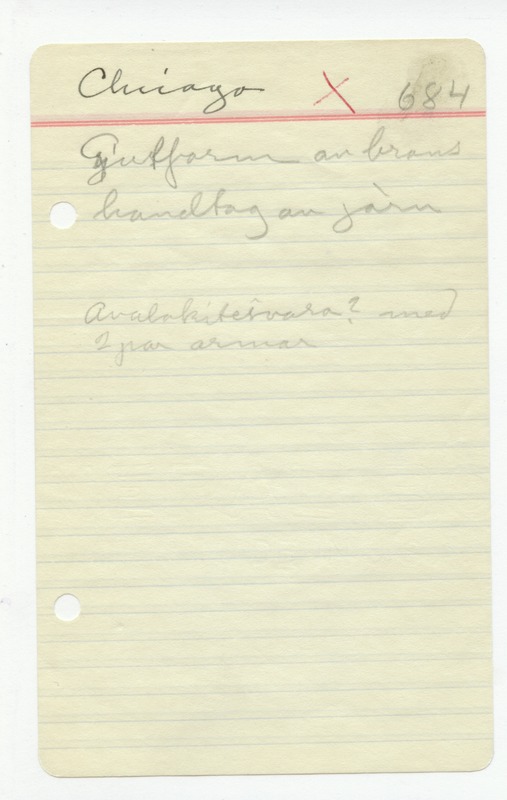 Chicago X 684
Gjutform av brons
handtag av järn
Avalokiteśvara? med
2 par armar